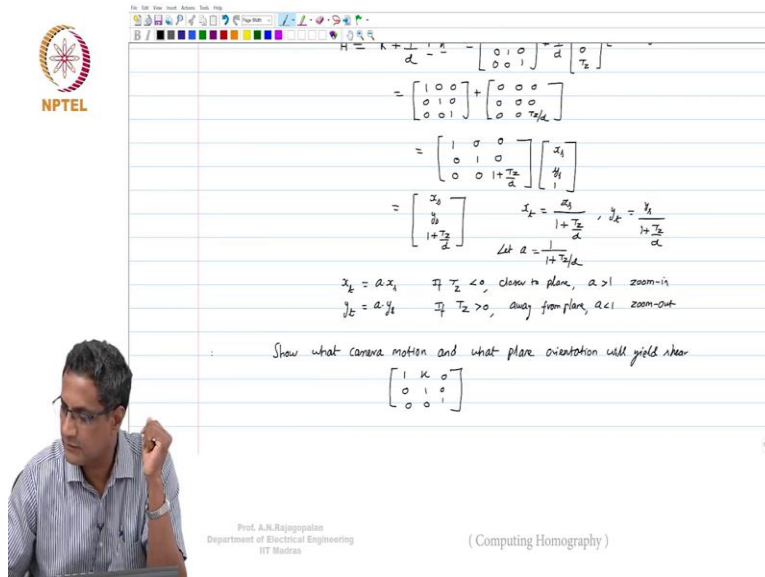 File Edit View Insert Actions Tools Help
Page Width
B I
NPTEL
0 1 0 0
0 0 1 Tz
= [1 0 0 + [0 0 0
0 1 0 0 0 0
0 0 1] 0 0 Tz/d]
= [1 0 0 xs
0 1 0 ys
0 0 1+Tz/d] 1
= [xs ys 1+Tz/d] xt = xs/(1+Tz/d) , yt = ys/(1+Tz/d)
Let a = 1/(1+Tz/d)
xt = a xs If Tz <0, closer to plane, a >1 zoom-in
yt = a. ys If Tz >0, away from plane, a<1 zoom-out
Show what camera motion and what plane orientation will yield shear
[1 K 0
0 1 0
0 0 1]
Prof. A.N.Rajagopalan
Department of Electrical Engineering
IIT Madras
( Computing Homography )